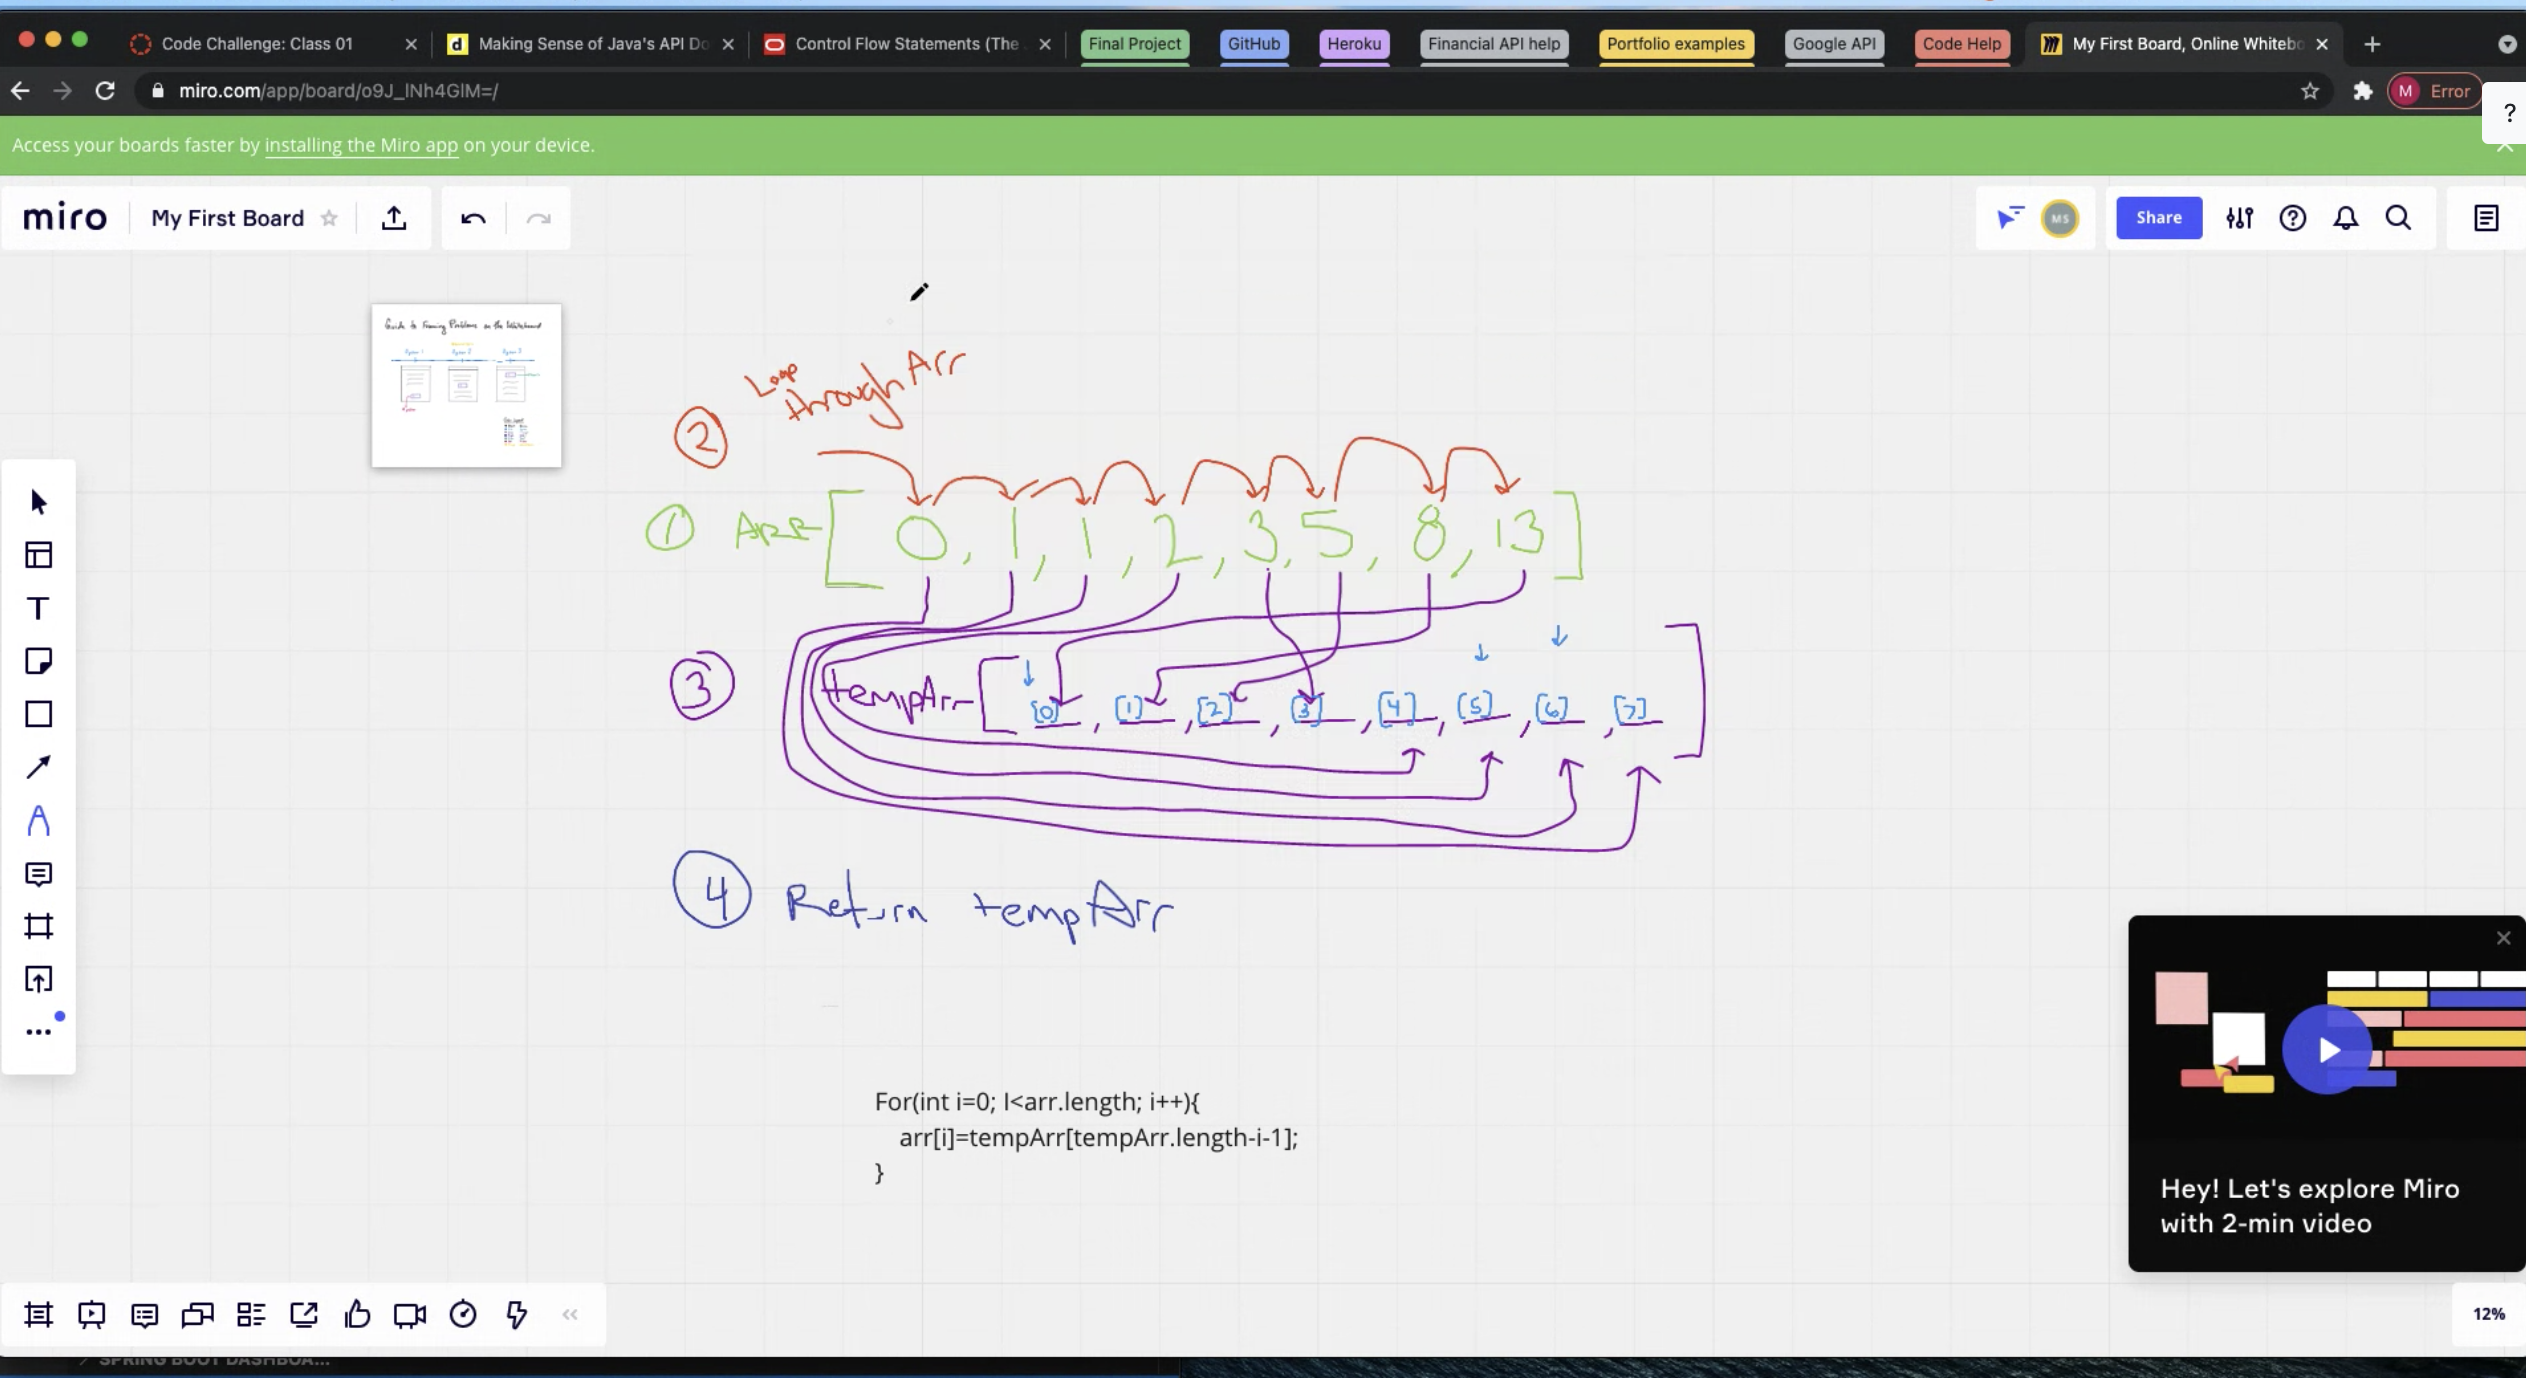 Code Challenge: Class 01
Making Sense of Java's API Do
Control Flow Statements (The
Final Project
GitHub
Heroku
Financial API help
Portfolio examples
Google API
Code Help
My First Board, Online Whitebo
miro.com/app/board/o9J_lNh4GlM=/
M Error
?
Access your boards faster by installing the Miro app on your device.
miro
My First Board
MS
Share
Guide to Framing Problems on the Whiteboard
② Loop
through Arr
① ARR [ 0, 1, 1, 2, 3, 5, 8, 13 ]
③ tempArr [ [0], [1], [2], [3], [4], [5], [6], [7] ]
④ Return tempArr
For(int i=0; I<arr.length; i++){
arr[i]=tempArr[tempArr.length-i-1];
}
Hey! Let's explore Miro
with 2-min video
12%
SPRING BOOT DASHBOA...